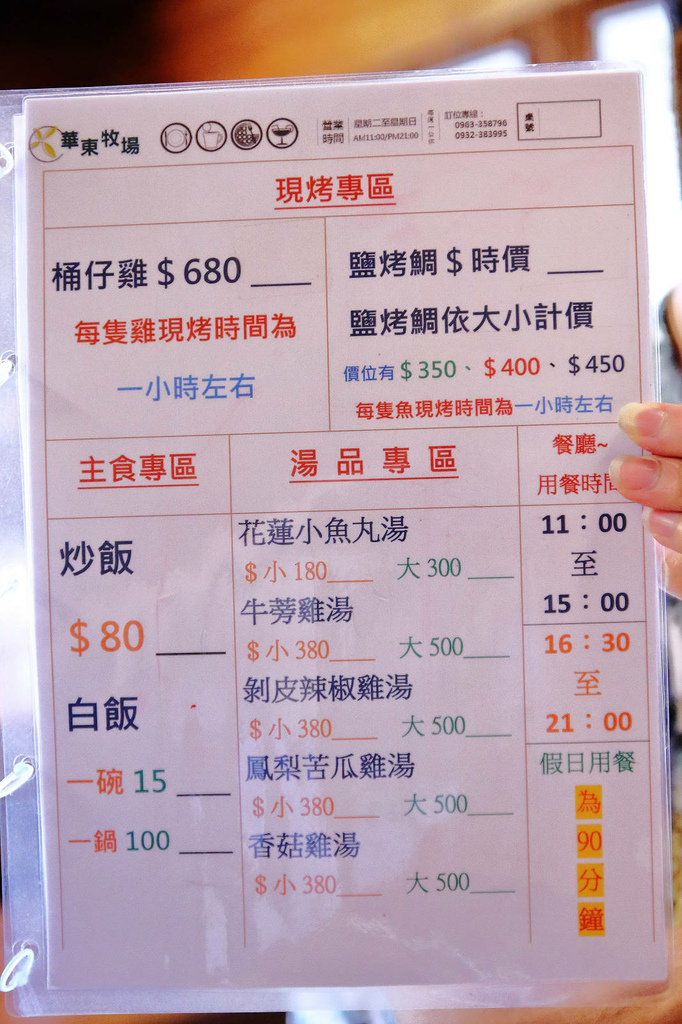 華東牧場
營業時間
星期二至星期日
AM11:00/PM21:00
每週一公休
訂位專線:
0963-358796
0932-383995
桌號
現烤專區
桶仔雞$680____
每隻雞現烤時間為
一小時左右
鹽烤鯛$時價 ____
鹽烤鯛依大小計價
價位有$350、$400、$450
每隻魚現烤時間為一小時左右
主食專區
炒飯
$80 ____
白飯
一碗 15 ____
一鍋 100 ____
湯品專區
花蓮小魚丸湯
$小180____ 大300____
牛蒡雞湯
$小380____ 大500____
剝皮辣椒雞湯
$小380____ 大500____
鳳梨苦瓜雞湯
$小380____ 大500____
香菇雞湯
$小380____ 大500____
餐廳~
用餐時間
11:00
至
15:00
16:30
至
21:00
假日用餐
為
90
分
鐘